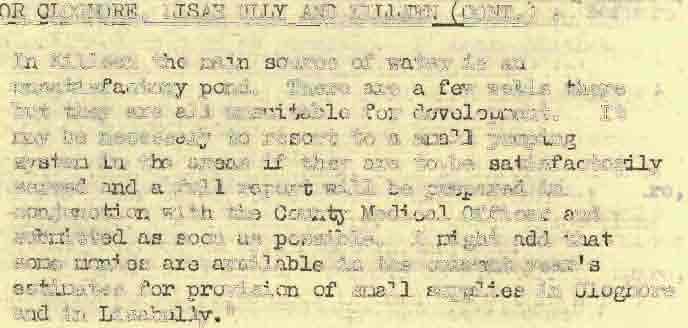 OR CLOGHORE, LISAH ULLY AND KILLEEN (CONT.)
In Killeen the main source of water is an
unsatisfactory pond. There are a few wells there
but they are all unsuitable for development. It
may be necessary to resort to a small pumping
system in the areas if they are to be satisfactorily
served and a full report will be prepared in
conjunction with the County Medical Officer and
submitted as soon as possible. I might add that
some monies are available in the current year's
estimates for provision of small supplies in Cloghore
and in Lisahully."